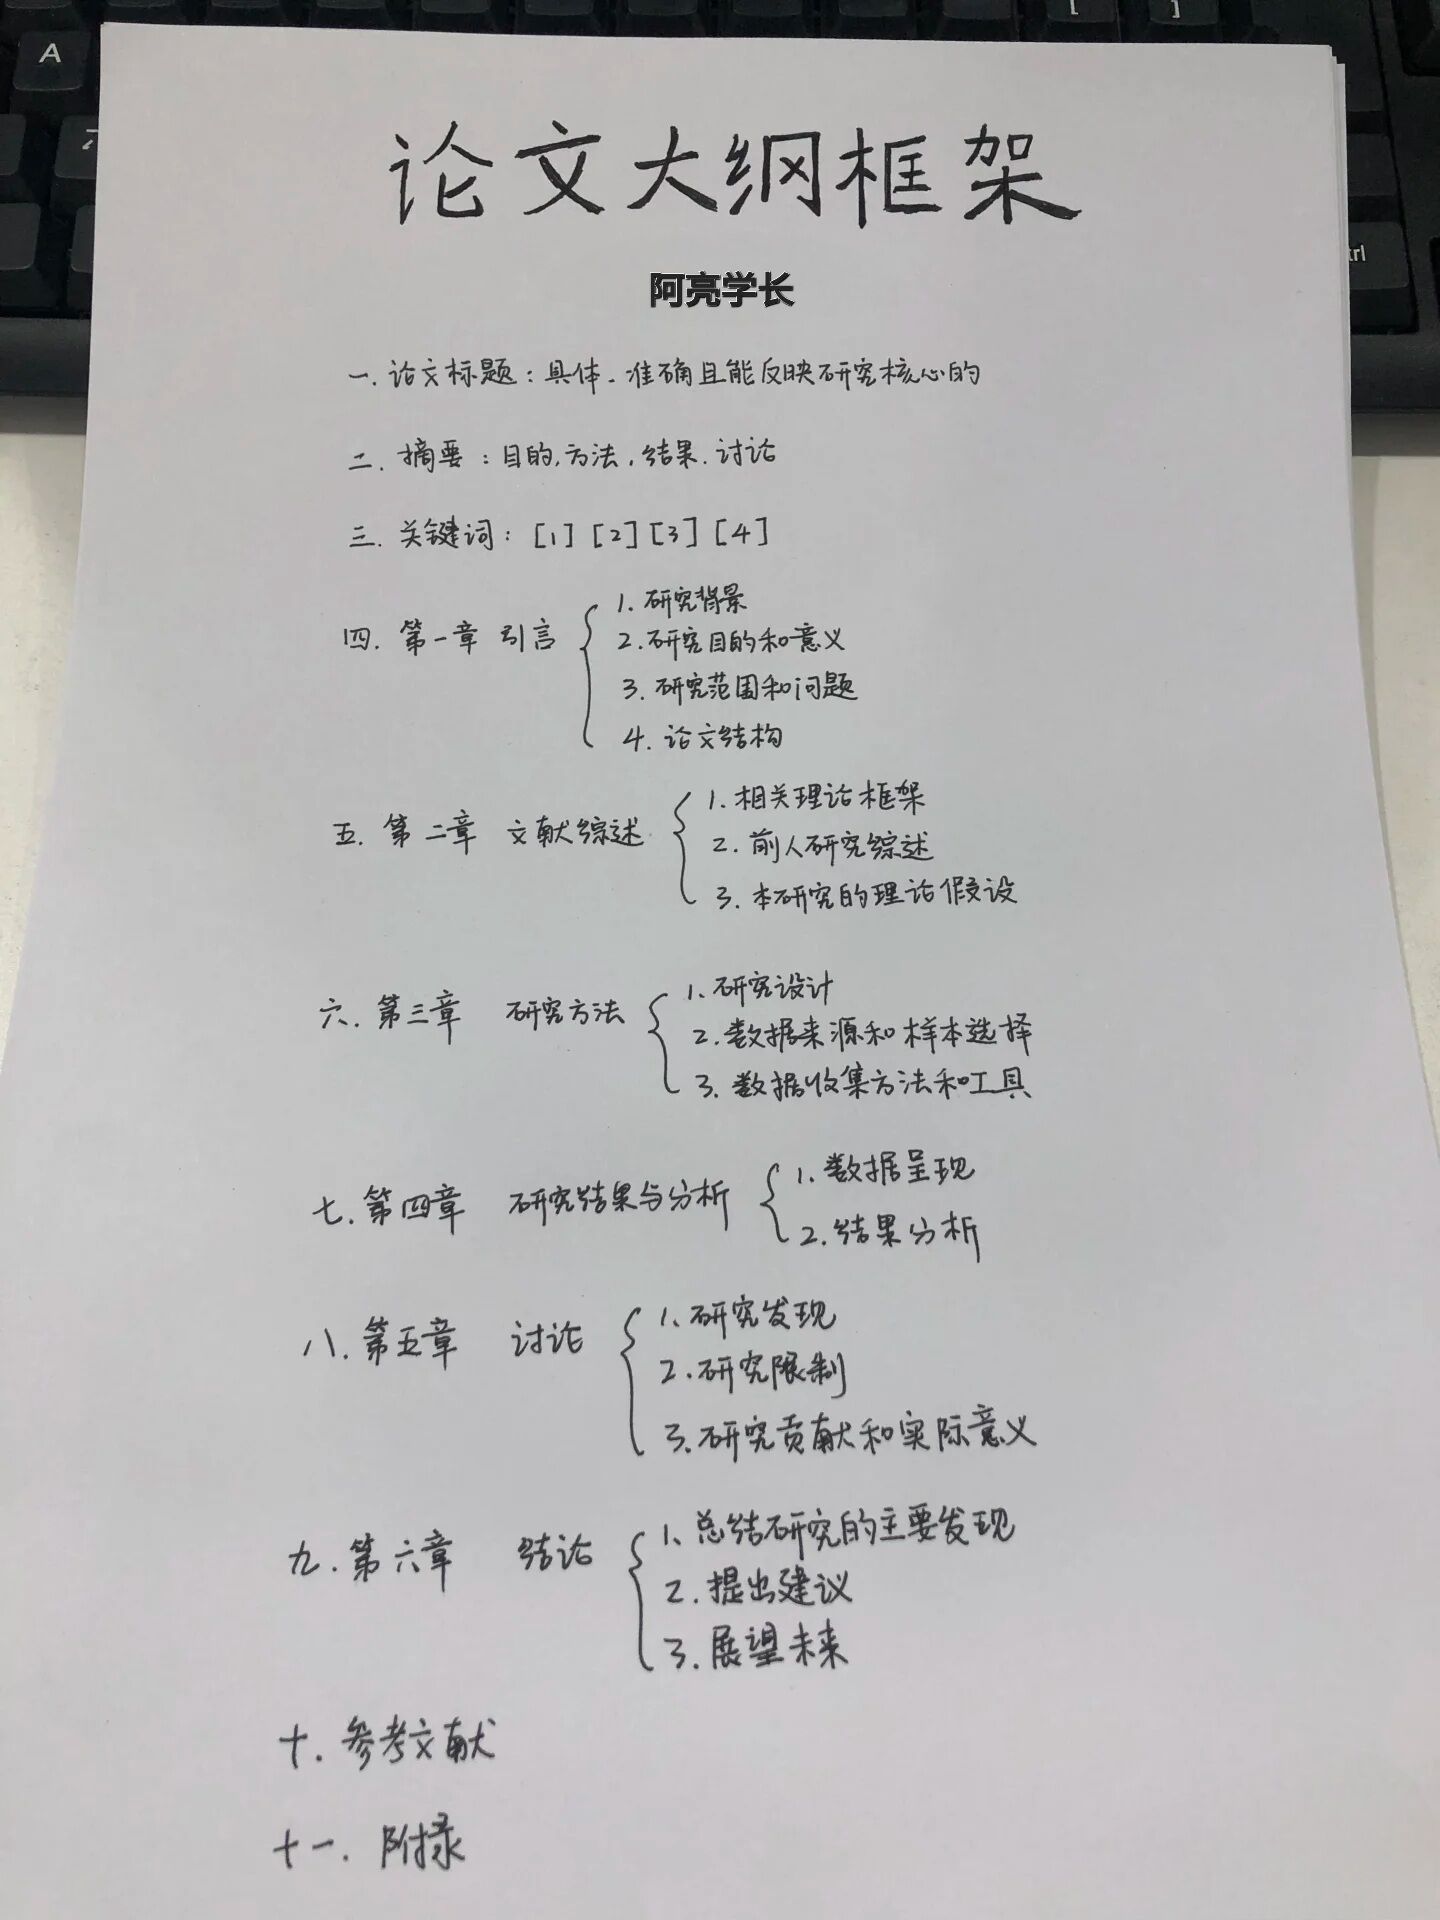 A
[
]
论文大纲框架
trl
阿亮学长
一.论文标题:具体、准确且能反映研究核心的
二.摘要:目的,方法,结果.讨论
三.关键词:[1][2][3][4]
四.第一章 引言
1.研究背景
2.研究目的和意义
3.研究范围和问题
4.论文结构
五.第二章 文献综述
1.相关理论框架
2.前人研究综述
3.本研究的理论假设
六.第三章 研究方法
1.研究设计
2.数据来源和样本选择
3.数据收集方法和工具
七.第四章 研究结果与分析
1.数据呈现
2.结果分析
八.第五章 讨论
1.研究发现
2.研究限制
3.研究贡献和实际意义
九.第六章 结论
1.总结研究的主要发现
2.提出建议
3.展望未来
十.参考文献
十一.附录